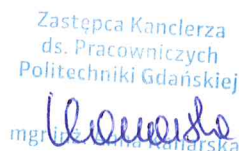 Zastępca Kanclerza
ds. Pracowniczych
Politechniki Gdańskiej
mgr inż.